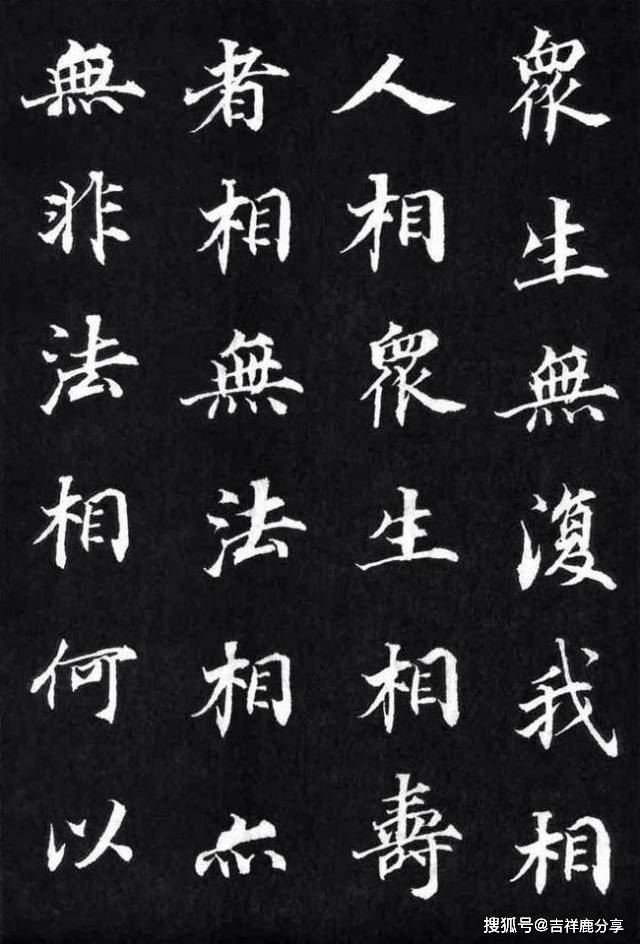 眾生無復我相
人相眾生相壽
者相無法相亦
無非法相何以
搜狐号@吉祥鹿分享